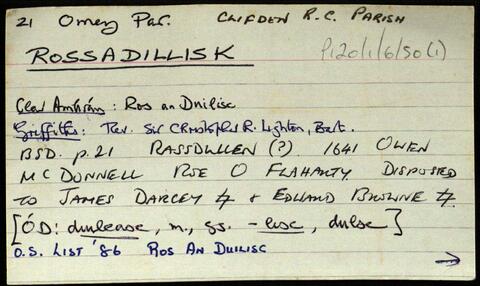 21 Omey Par. CLIFDEN R.C. PARISH
P120/1/6/50(1)
ROSSADILLISK
Clár Amhrán: Ros an Duilisc
Griffiths: Rev. Sir Christopher R. Lighton, Bart.
BSD. p.21 RASSDULLEN (?) 1641 OWEN
MC DONNELL ROE O FLAHARTY DISPOSED
TO JAMES DARCEY & EDWARD BROWNE
[ÓD: duileasc, m., gs. -lisc, dulse]
O.S. LIST '86 ROS AN DUILISC
→